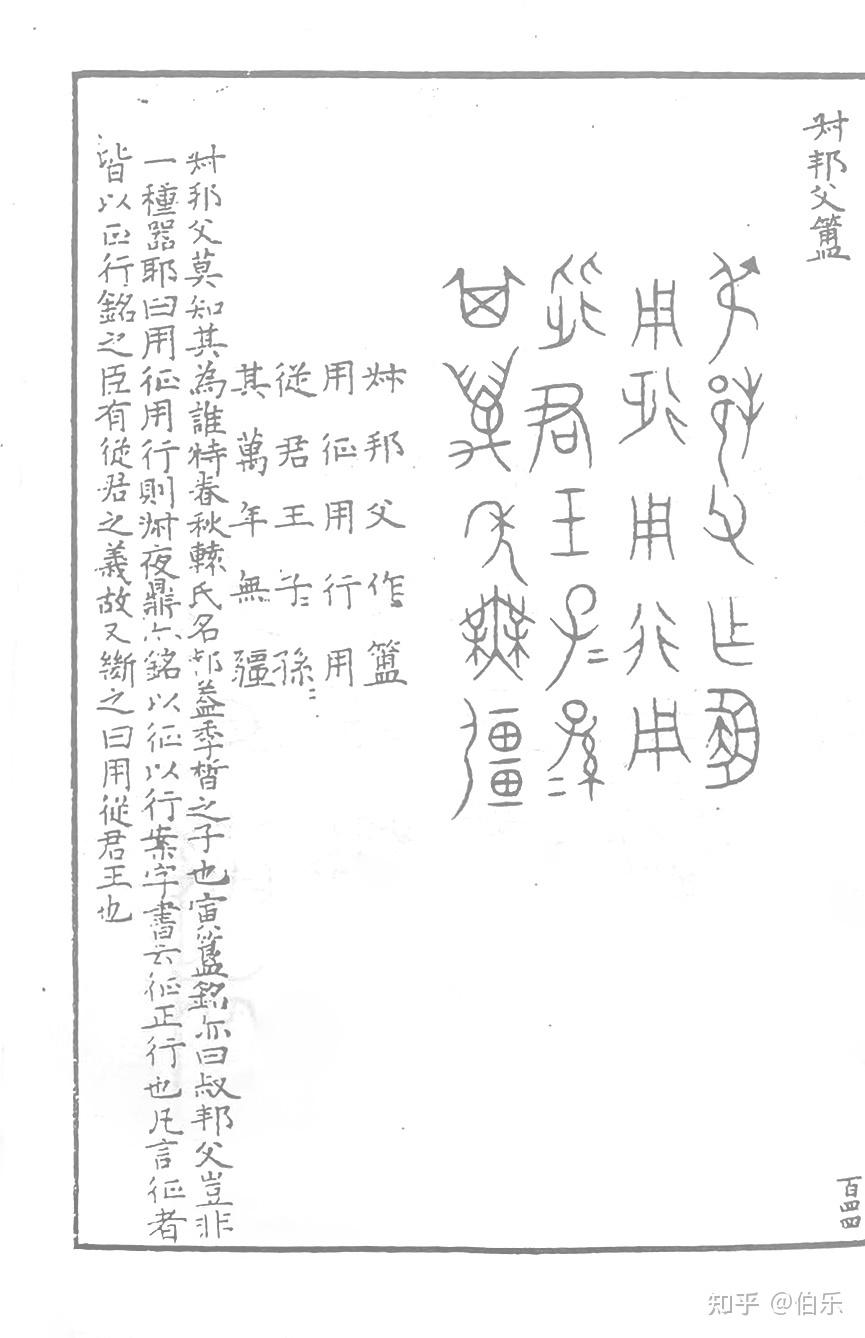 尗邦父簠
尗邦父作簠
用征用行用
從君王子=孫=
其萬年無疆
尗邦父莫知其為誰特春秋𫐄氏名邦蓋季皙之子也寅簋銘亦曰叔邦父豈非
一種器耶曰用征用行則尗夜鼎亦銘以征以行案字書云征正行也凡言征者
皆以征行銘之臣有從君之義故又斷之曰用從君王也
百四四
知乎 @伯乐